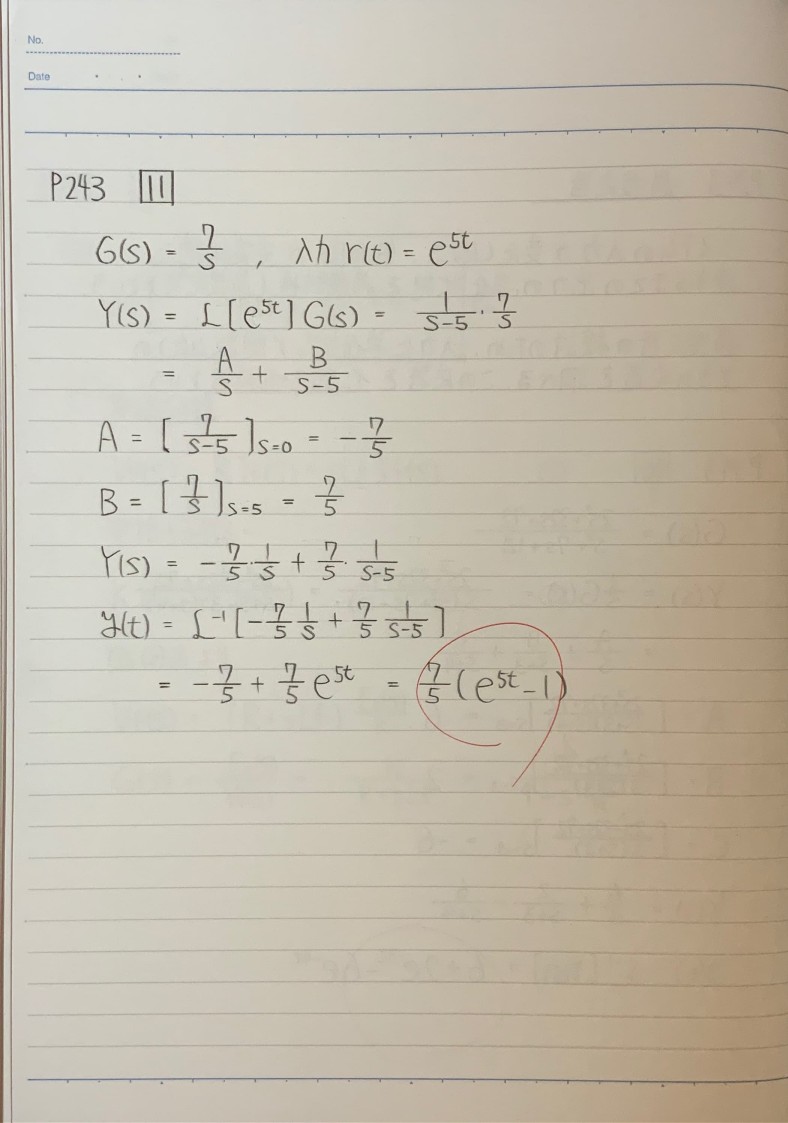 No.
Date
P243 11
G(s) = 7/s , 入力 r(t) = e^{5t}
Y(s) = L[e^{5t}] G(s) = 1/(s-5) · 7/s
= A/s + B/(s-5)
A = [7/(s-5)]_{s=0} = -7/5
B = [7/s]_{s=5} = 7/5
Y(s) = -7/5 · 1/s + 7/5 · 1/(s-5)
y(t) = L^{-1}[-7/5 1/s + 7/5 1/(s-5)]
= -7/5 + 7/5 e^{5t} = 7/5 (e^{5t} - 1)